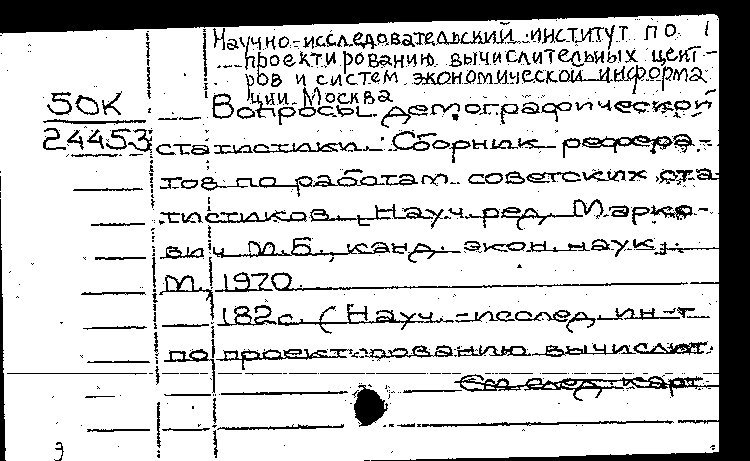 Научно-исследовательский институт по 1
проектированию вычислительных цент-
ров и систем экономической информа
ции. Москва
50К
24453
Вопросы демографической
статистики. Сборник рефера-
тов по работам советских ста
тистиков. [Науч. ред. Марко-
вич М.Б., канд. экон. наук].
М., 1970.
182с. (Науч.-исслед. ин-т
по проектированию вычислит.
См след. карт
9